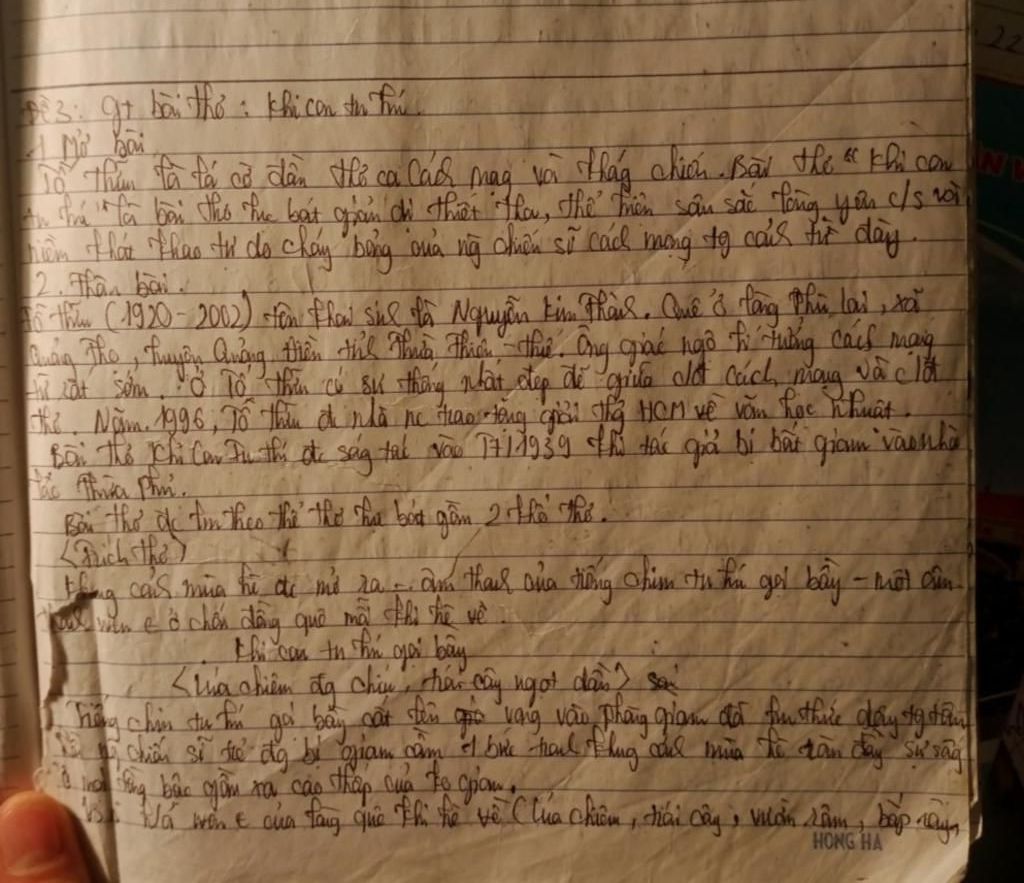 Đề 3: gt bài thơ: Khi con tu hú.
1 Mở bài
Tố Hữu là lá cờ đầu thơ ca Cách mạg và khág chiến. Bài thơ "Khi con
tu hú" là bài thơ lục bát giản dị thiết tha, thể hiện sâu sắc lòng yêu c/s và
niềm khát khao tự do cháy bỏng của ng chiến sĩ cách mạng tg cảnh tù đày.
2. Thân bài.
Tố Hữu (1920-2002) tên khai sinh là Nguyễn Kim Thành. Quê ở làng Phù Lai, xã
Quảng Thọ, huyện Quảng Điền tỉnh Thừa Thiên - Huế. Ông giác ngộ lí tưởng cách mạng
từ rất sớm. Ở Tố Hữu có sự thống nhất đẹp đẽ giữa cđời cách mạng và cđời
thơ. Năm 1996, Tố Hữu đc nhà nc trao tặng giải thg HCM về văn học Nthuật.
Bài thơ Khi Con Tu hú đc ság tác vào T7/1939 khi tác giả bị bắt giam vào nhà
lao Thừa Phủ.
Bài thơ đc làm theo thể thơ lục bát gồm 2 khổ thơ.
<Trích thơ>
Khung cảnh mùa hè đc mở ra - âm thanh của tiếng chim tu hú gọi bầy - một âm
thanh wen € ở chốn đồng quê mỗi khi hè về.
Khi con tu hú gọi bầy
<Lúa chiêm đg chín, trái cây ngọt dần>
Tiếng chim tu hú gọi bầy cất lên vọng vào phòng giam đã làm thức dậy tg tâm
chiến sĩ trẻ đg bị giam cầm 1 bức tranh khug cảnh mùa hè tràn đầy sự sống
bậc gần xa cao thấp của ko gian.
wen € của làng quê khi hè về (lúa chiêm, trái cây, vườn râm, bắp rây,
HONG HA